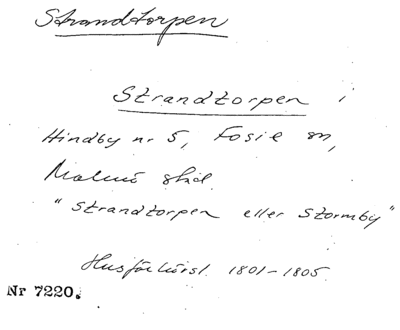 Strandtorpen
Strandtorpen i
Hindby nr 5, Fosie sn,
Malmö stad.
"Strandtorpen eller Stormby"
Husförhörsl. 1801-1805.
Nr 7220.